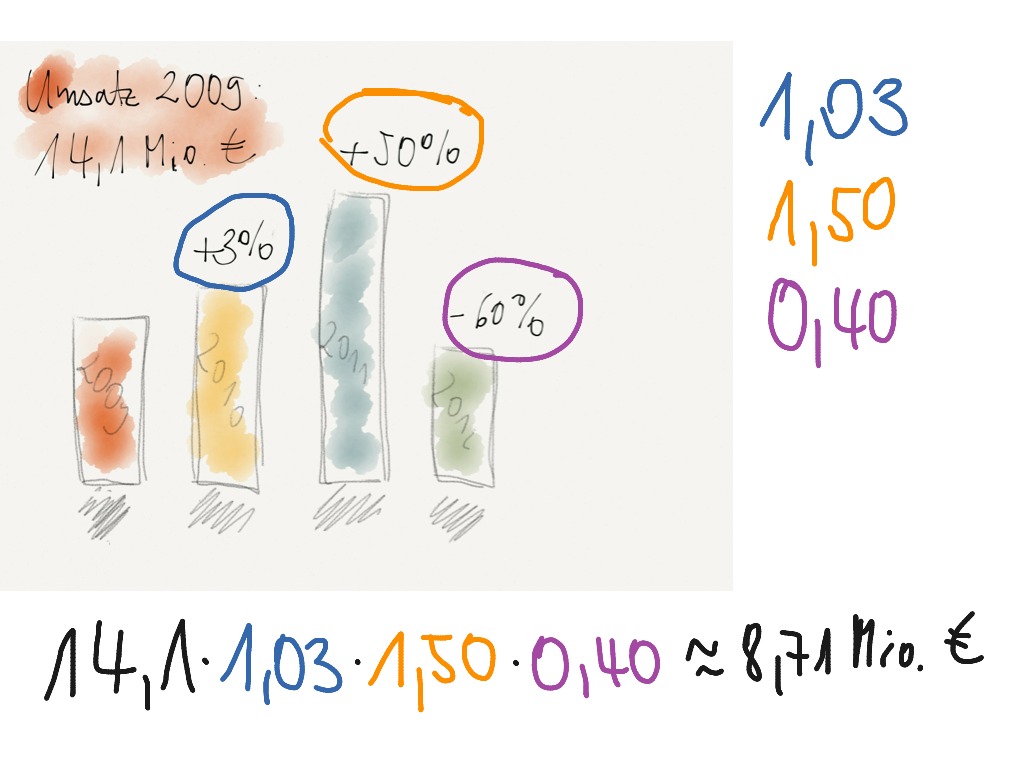 Umsatz 2009:
14,1 Mio. €
+50%
+3%
-60%
2009
2010
2011
2012
1,03
1,50
0,40
14,1 · 1,03 · 1,50 · 0,40 ≈ 8,71 Mio. €